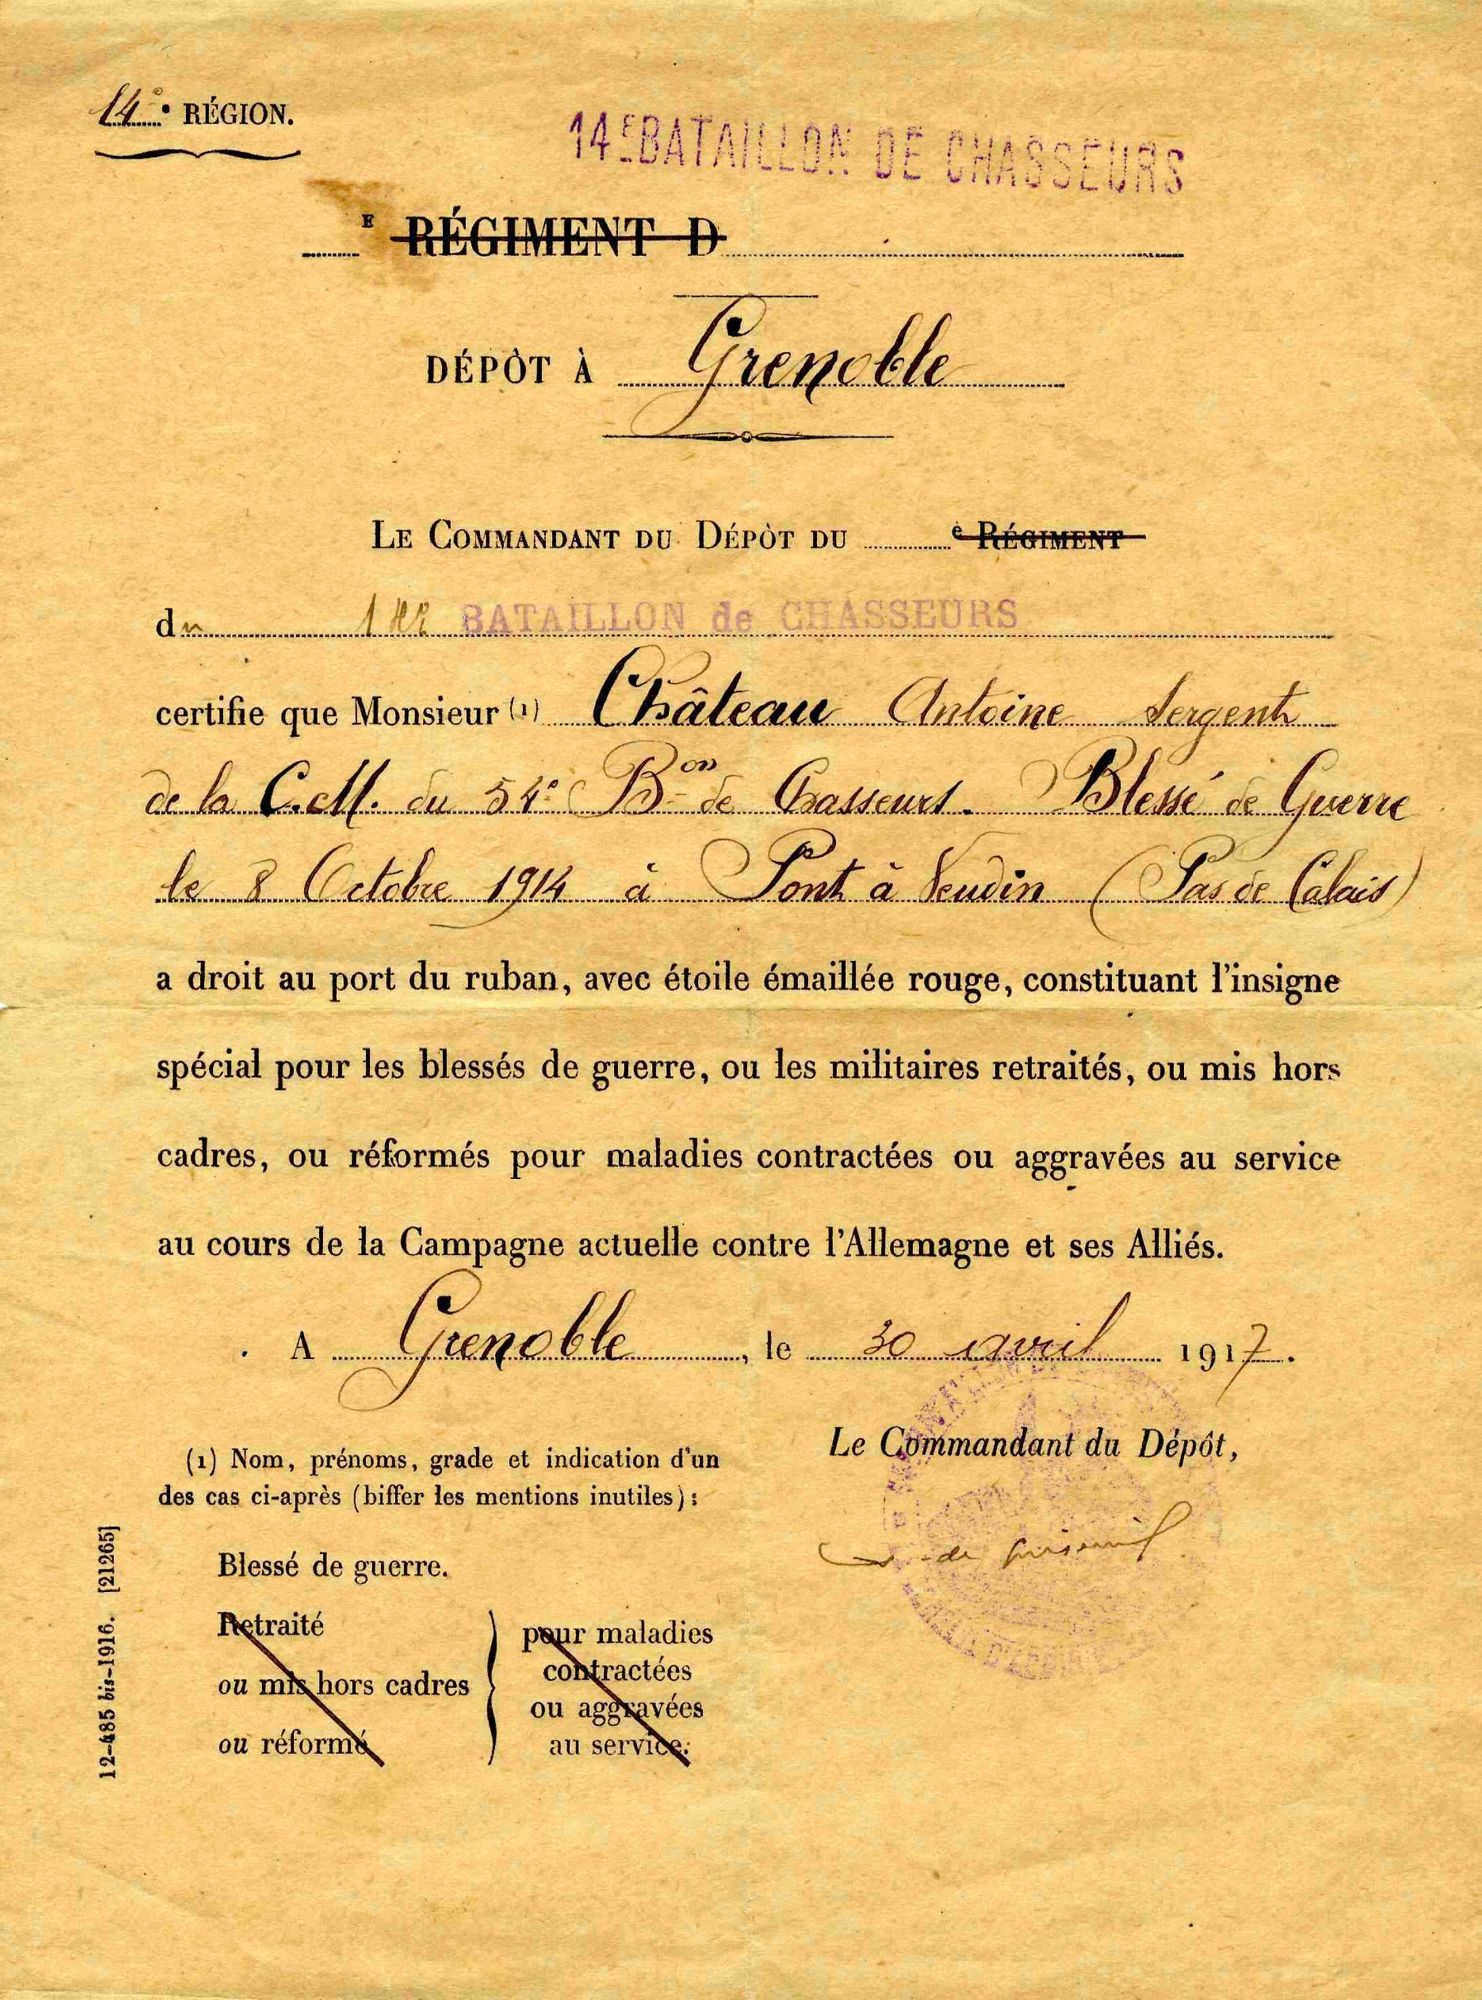 14e • RÉGION.
14E BATAILLON DE CHASSEURS
E RÉGIMENT D
DÉPÔT À Grenoble
LE COMMANDANT DU DÉPÔT DU e RÉGIMENT
du BATAILLON de CHASSEURS
certifie que Monsieur (1) Château Antoine Sergent
de la C.M. du 54e Bon de Chasseurs. Blessé de Guerre
le 8 Octobre 1914 à Pont à Vendin (Pas de Calais)
a droit au port du ruban, avec étoile émaillée rouge, constituant l'insigne
spécial pour les blessés de guerre, ou les militaires retraités, ou mis hors
cadres, ou réformés pour maladies contractées ou aggravées au service
au cours de la Campagne actuelle contre l'Allemagne et ses Alliés.
A Grenoble, le 30 avril 1917.
Le Commandant du Dépôt,
(1) Nom, prénoms, grade et indication d'un
des cas ci-après (biffer les mentions inutiles) :
Blessé de guerre.
Retraité
ou mis hors cadres
ou réformé
pour maladies
contractées
ou aggravées
au service.
12-485 bis-1916. [21265]